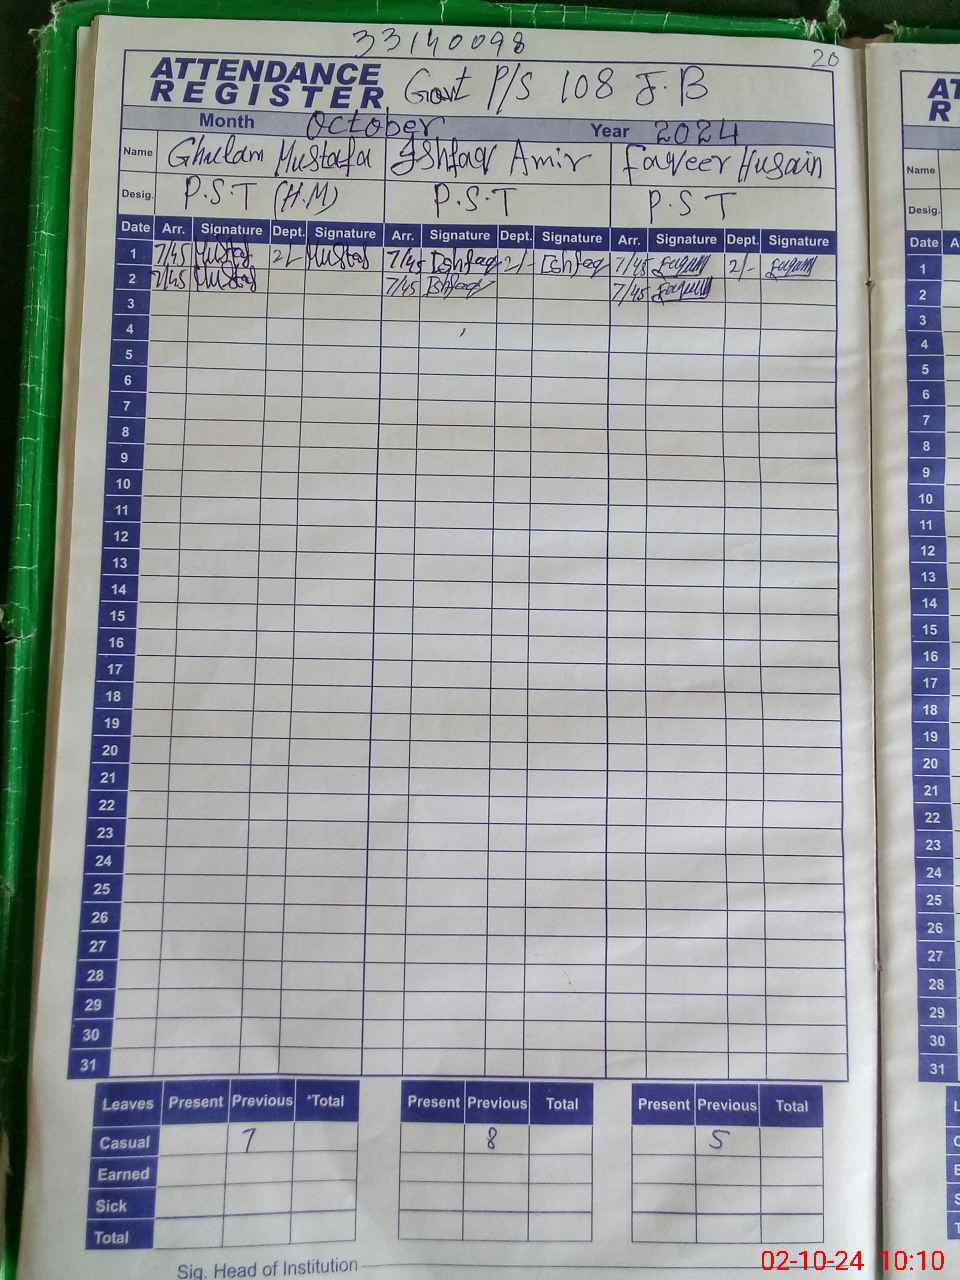 33140098
20
ATTENDANCE REGISTER Govt P/S 108 J.B
Month October Year 2024
Name Ghulam Mustafa Ishfaq Amir Faqeer Husain
Desig. P.S.T (H.M) P.S.T P.S T
Date Arr. Signature Dept. Signature Arr. Signature Dept. Signature Arr. Signature Dept. Signature
1 7/45 Mustaf 2/- Mustaf 7/45 Ishfaq 2/- Ishfaq 7/45 2/-
2 7/45 Mustaf 7/45 Ishfaq 7/45
3
4
5
6
7
8
9
10
11
12
13
14
15
16
17
18
19
20
21
22
23
24
25
26
27
28
29
30
31
Leaves Present Previous *Total Present Previous Total Present Previous Total
Casual 7 8 5
Earned
Sick
Total
Sig. Head of Institution
AT
R
Name
Desig.
Date A
1
2
3
4
5
6
7
8
9
10
11
12
13
14
15
16
17
18
19
20
21
22
23
24
25
26
27
28
29
30
31
02-10-24 10:10